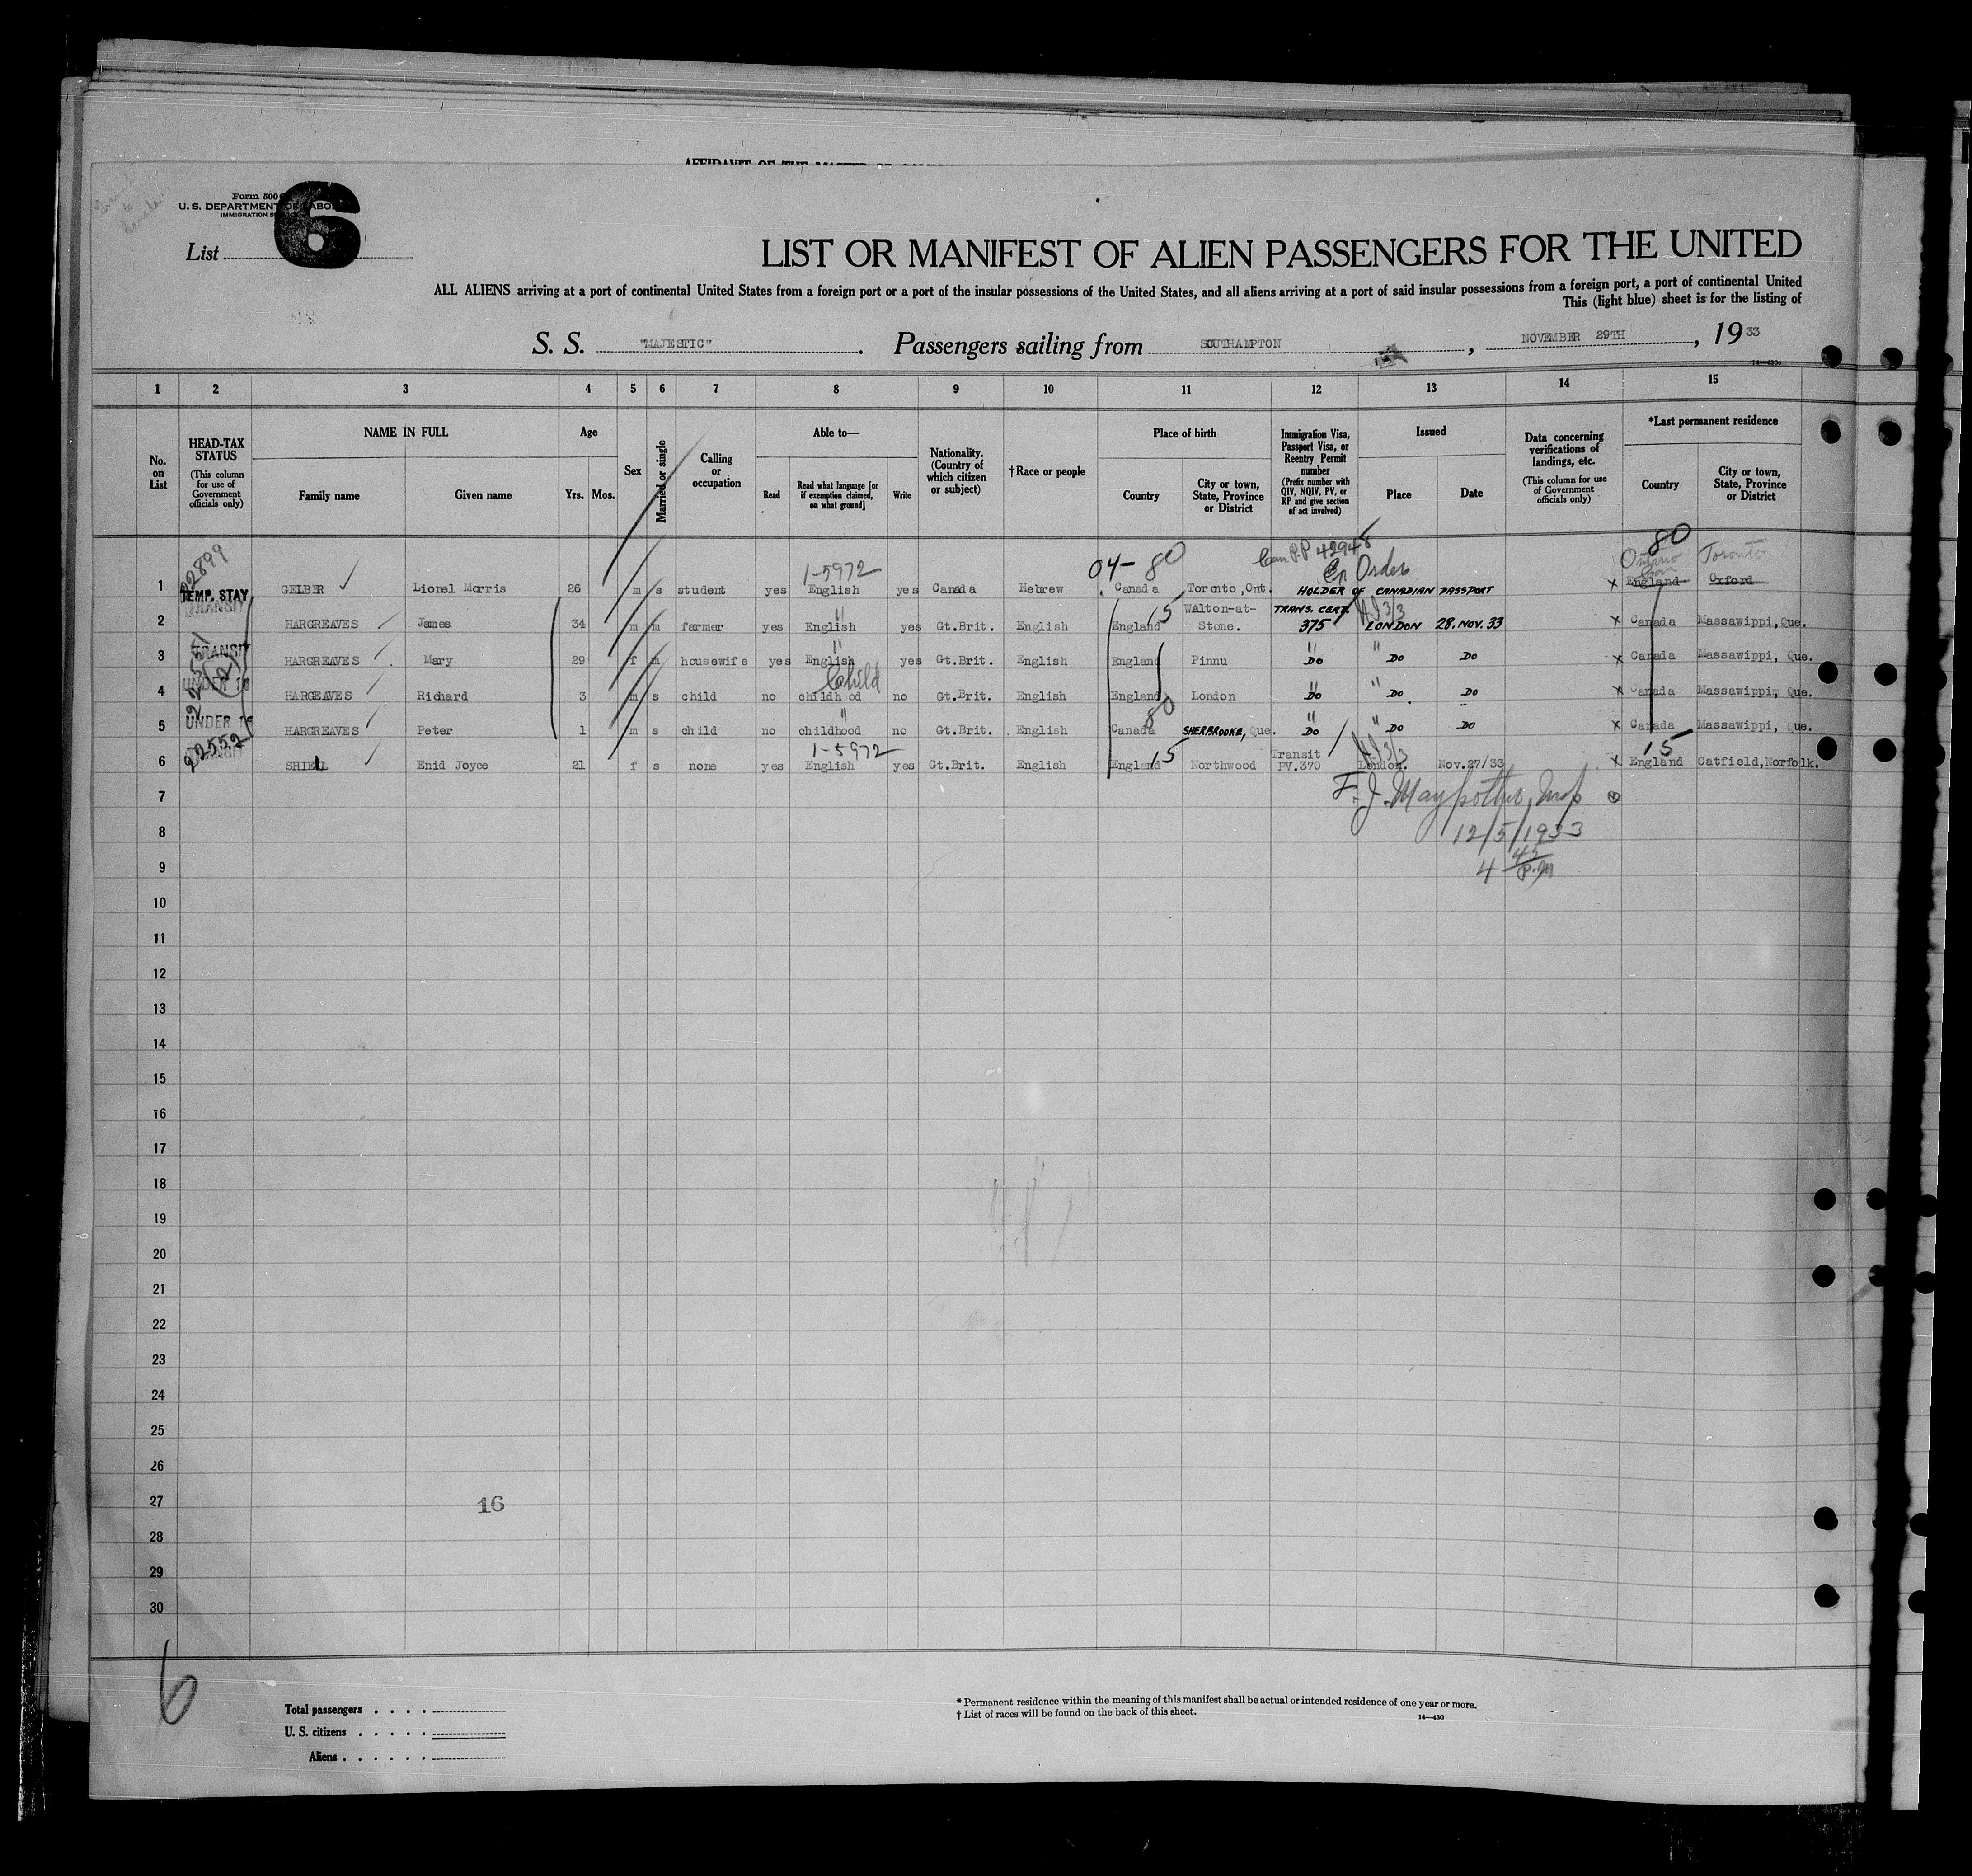 AFFIDAVIT OF THE MASTER OR
Form 500
U. S. DEPARTMENT OF LABOR
IMMIGRATION
List 6
LIST OR MANIFEST OF ALIEN PASSENGERS FOR THE UNITED
ALL ALIENS arriving at a port of continental United States from a foreign port or a port of the insular possessions of the United States, and all aliens arriving at a port of said insular possessions from a foreign port, a port of continental United
This (light blue) sheet is for the listing of
S. S. "MAJESTIC". Passengers sailing from SOUTHAMPTON, NOVEMBER 29TH, 1933
14-430
1 2 3 4 5 6 7 8 9 10 11 12 13 14 15
No. on List
HEAD-TAX STATUS (This column for use of Government officials only)
NAME IN FULL Family name Given name
Age Yrs. Mos.
Sex
Married or single
Calling or occupation
Able to— Read Read what language [or if exemption claimed, on what ground] Write
Nationality. (Country of which citizen or subject)
†Race or people
Place of birth Country City or town, State, Province or District
Immigration Visa, Passport Visa, or Reentry Permit number (Prefix number with QIV, NQIV, PV, or RP and give section of act involved)
Issued Place Date
Data concerning verifications of landings, etc. (This column for use of Government officials only)
*Last permanent residence Country City or town, State, Province or District
22899 1-5972 04-80 Can P.P 42948 Ex Order 80 Ontario Can Toronto
1 TEMP. STAY GELBER Lionel Morris 26 m s student yes English yes Canada Hebrew Canada Toronto,Ont. HOLDER OF CANADIAN PASSPORT x England Oxford
TRANSIT " 15 Walton-at- TRANS. CERT.
2 HARGREAVES James 34 m m farmer yes English yes Gt.Brit. English England Stone. 375 LONDON 28.NOV.33 x Canada Massawippi,Que.
3 TRANSIT HARGREAVES Mary 29 f m housewife yes English yes Gt.Brit. English England Pinnu DO DO DO x Canada Massawippi, Que.
Child
4 UNDER 16 HARGEAVES Richard 3 m s child no childhood no Gt.Brit. English England London DO DO DO x Canada Massawippi, Que.
80
5 UNDER 16 HARGREAVES Peter 1 m s child no childhood no Gt.Brit. English Canada SHERBROOKE, Que. DO DO DO x Canada Massawippi, Que.
22552 1-5972 15 Transit 15
6 TRANSIT SHIELL Enid Joyce 21 f s none yes English yes Gt.Brit. English England Northwood PV.370 London. Nov.27/33 x England Catfield,Norfolk.
7
8 12/5/1933
9 4 45 P.M
10
11
12
13
14
15
16
17
18
19
20
21
22
23
24
25
26
27 16
28
29
30
6
Total passengers . . . .
U. S. citizens . . . . .
Aliens . . . . . .
* Permanent residence within the meaning of this manifest shall be actual or intended residence of one year or more.
† List of races will be found on the back of this sheet.
14—430